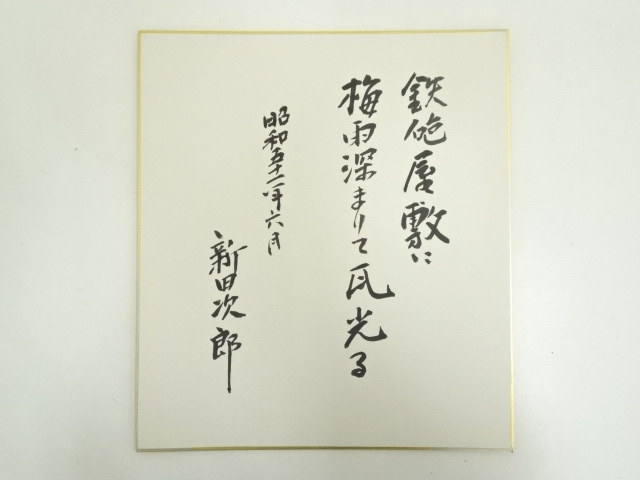 鉄砲屋敷に
梅雨深まりて瓦光る
昭和五十一年六月
新田次郎